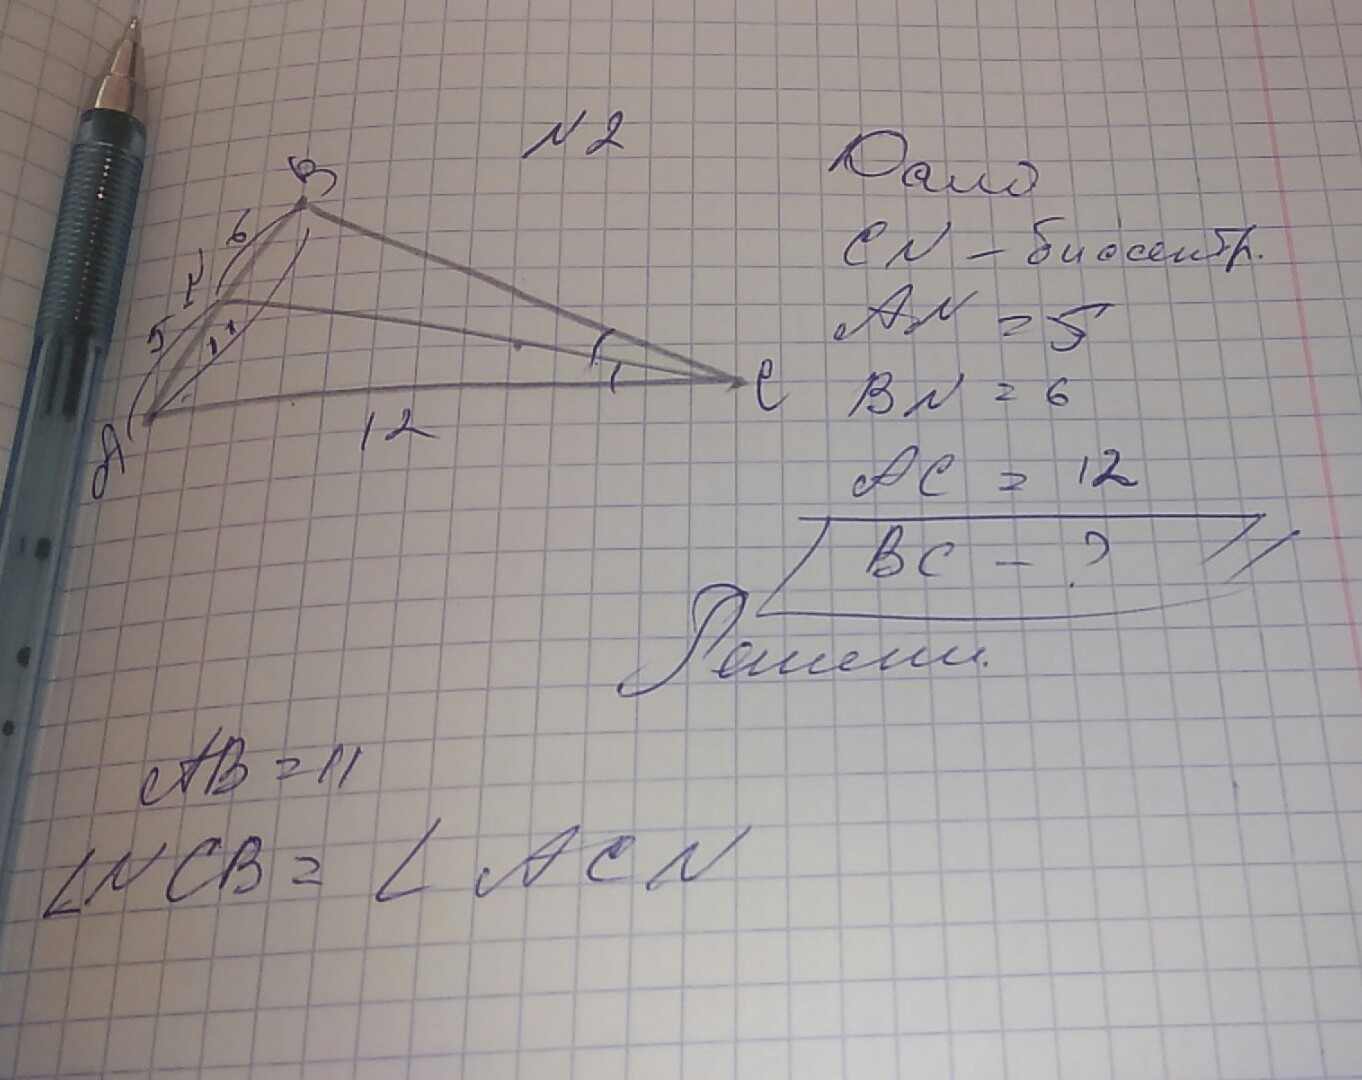 N 2
B
6
N
5
11
A
12
C
Дано
CN – биссектр.
AN = 5
BN = 6
AC = 12
BC – ?
Решени.
AB = 11
∠NCB = ∠ACN